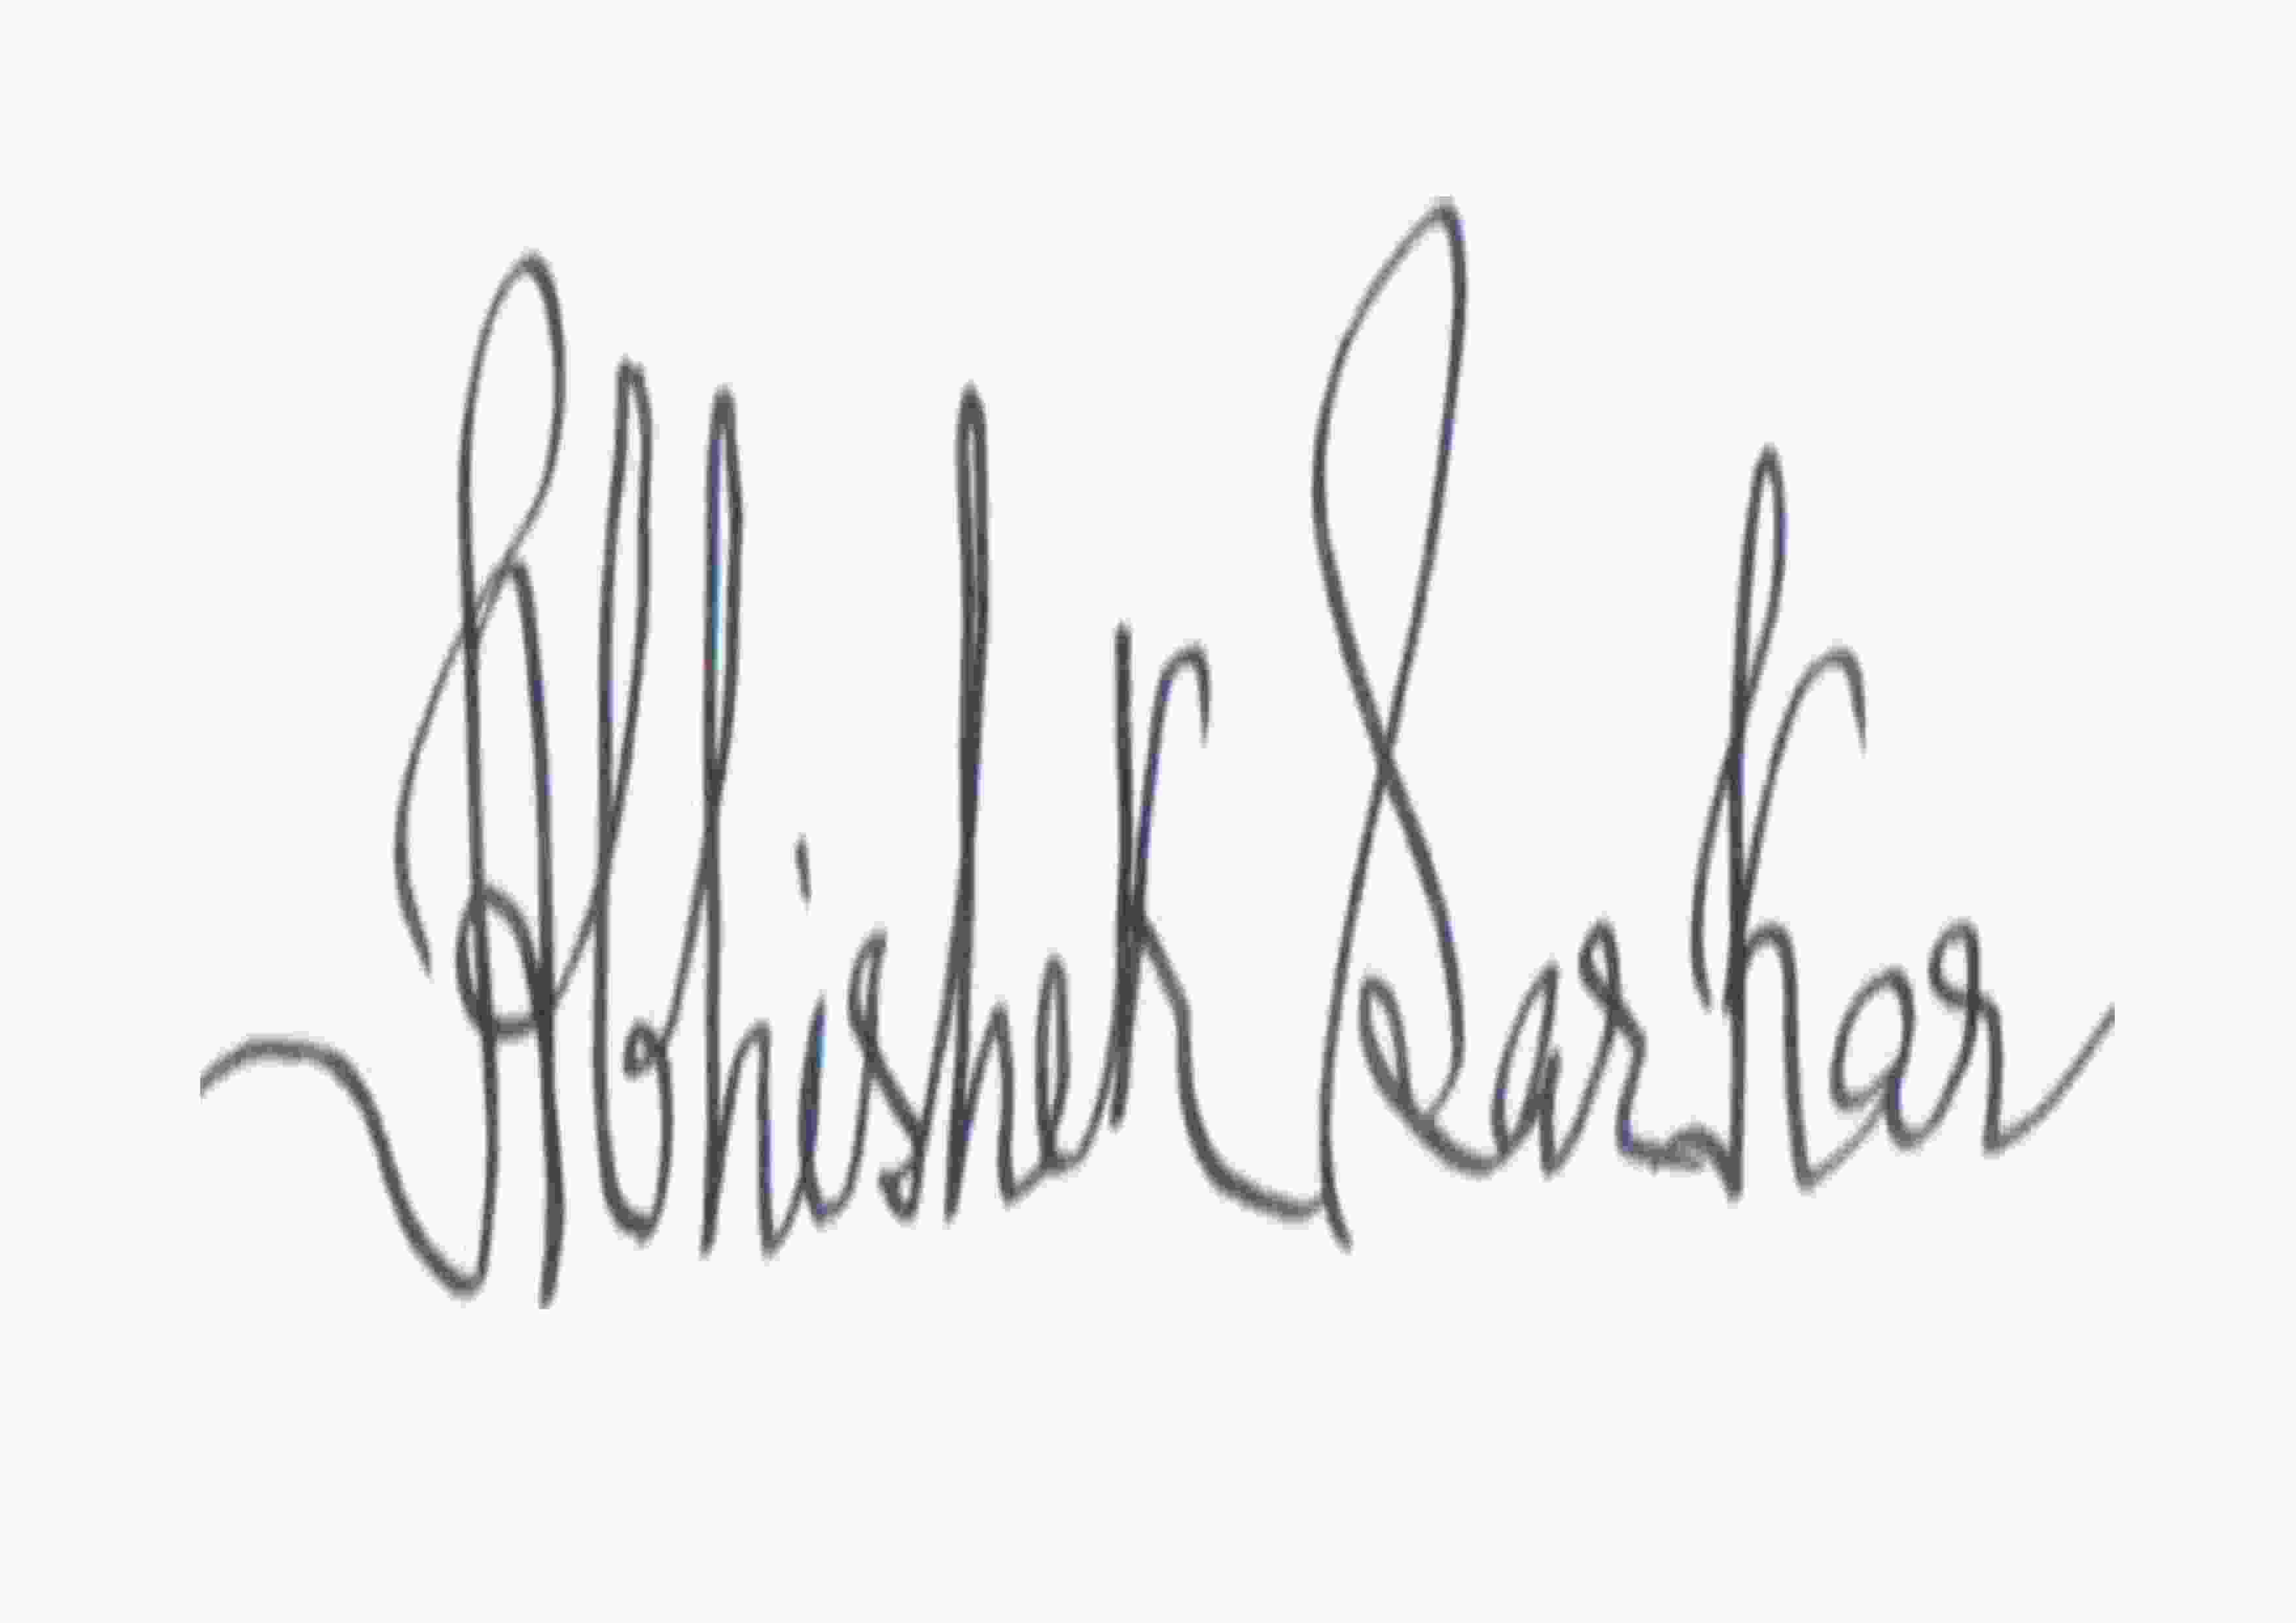 Abhishek Sarkar